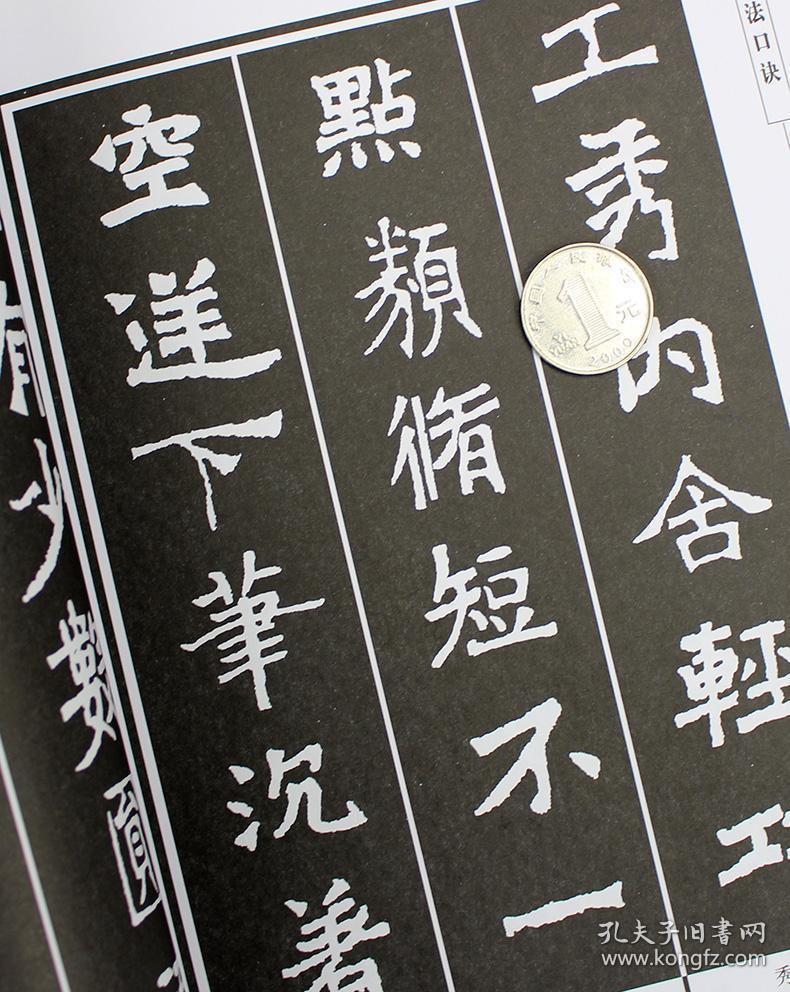 法口诀
工秀内舍輕
點類脩短不一
空送下筆沉著
有少數圓
中国人民银行
1元
2000
秀
孔夫子旧书网
www.kongfz.com